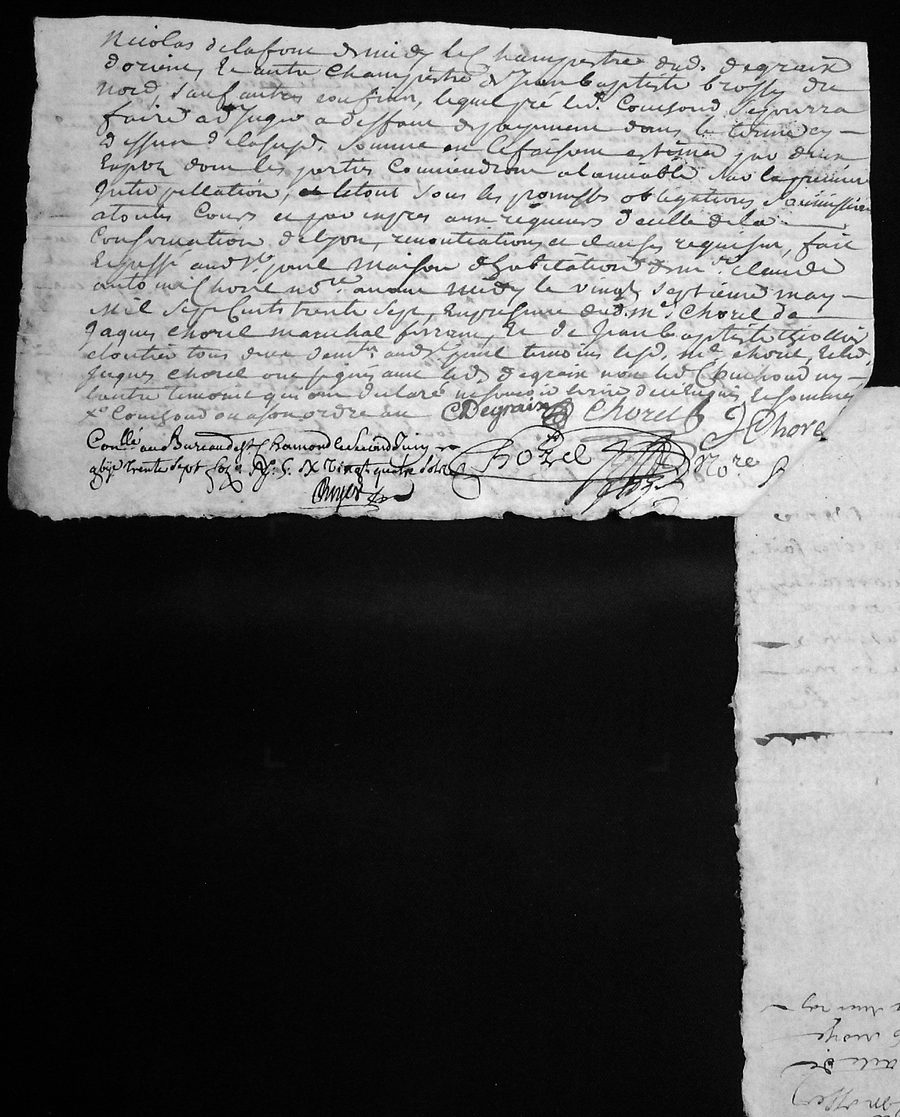 Nicolas delafont de midy le Champestre dud. degraix
dorient, Et autre Champestre de Jean baptiste brosse du
Nord Sauf autres confins, lequel pré led. Couzond Se pourra
faire adjuger a deffaut de payement dans le terme cy-
dessus delasusd. Somme en le faisant estimer par deux
Expertz dont les parties Conviendront alamiable Sur la premiere
Interpellation, et letout Sous les promesses obligations Soumissions
atoutes Cours et par exprès aux rigueurs decelle de la
Conservation delyon, renontiations et clauses requises, fait
Et passé aud. maison d'habitation de mr. claude
antoine Chorel nore. avant midy le vingt Septieme may
Mil Sept Cents trente Sept, En presence dud. mr. Chorel de
Jaques chorel marechal ferrant, Et de Jean baptiste thiollier
cloutier tous deux aud. temoins lesd. mr. chorel, Et led.
Jaques chorel ont Signé avec led. degraix non led. Couzond ny
lautre temoins qui ont declaré ne scavoir Ecrire de ce Enquis Et Sommés
Xo. Couzond ou a son ordre
Degraix Chorel J Chorel
Conllé. au Bureau de St Chamond le Second Juin
gbje trente Sept fo. Vingt quatre Sols
Chorel Nore
Royer